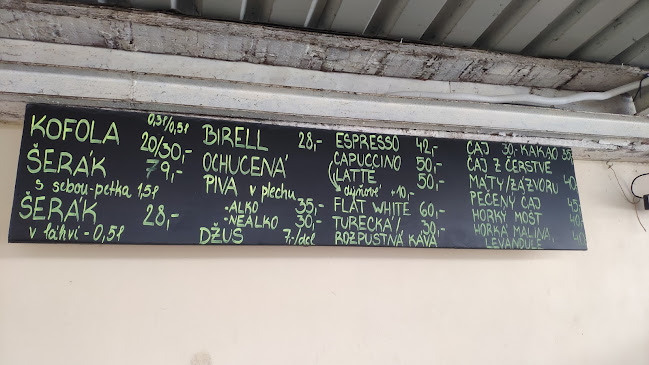 0,3l/0,5l
KOFOLA 20/30,-
ŠERÁK 79,-
s sebou-petka 1,5l
ŠERÁK 28,-
v láhvi - 0,5l
BIRELL 28,-
OCHUCENÁ
PIVA v plechu
-ALKO 35,-
-NEALKO 30,-
DŽUS 7,-/dcl
ESPRESSO 42,-
CAPUCCINO 50,-
LATTE 50,-
dýňové +10,-
FLAT WHITE 60,-
TURECKÁ/ 30,-
ROZPUSTNÁ KÁVA
ČAJ 30,- KAKAO 35,-
ČAJ Z ČERSTVÉ
MÁTY/ZÁZVORU 40,-
PEČENÝ ČAJ 45,-
HORKÝ MOŠT
HORKÁ MALINA,
LEVANDULE